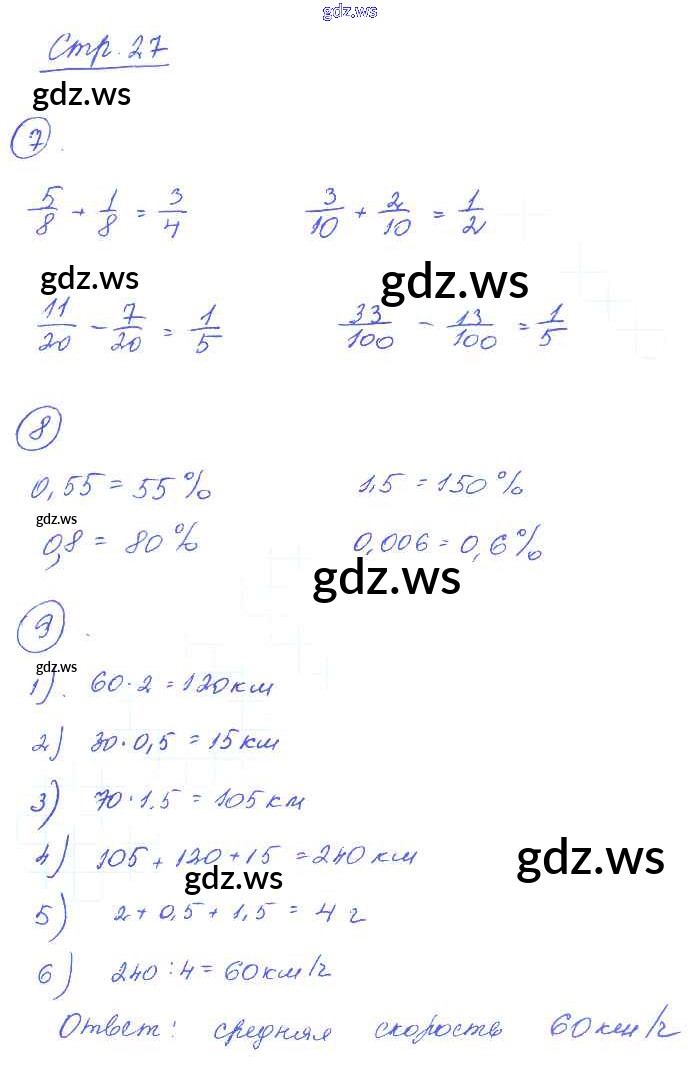 gdz.ws
Стр. 27
gdz.ws
7.
5/8 + 1/8 = 3/4    3/10 + 2/10 = 1/2
gdz.ws gdz.ws
11/20 - 7/20 = 1/5    33/100 - 13/100 = 1/5
8
0,55 = 55%    1,5 = 150%
gdz.ws
0,8 = 80%    0,006 = 0,6%
gdz.ws
9.
gdz.ws
1). 60·2 = 120км
2) 30·0,5 = 15км
3) 70·1,5 = 105км
4) 105 + 120 + 15 = 240 км
gdz.ws
gdz.ws
5) 2 + 0,5 + 1,5 = 4 г
6) 240 : 4 = 60км/г
Ответ: средняя скорость 60км/г